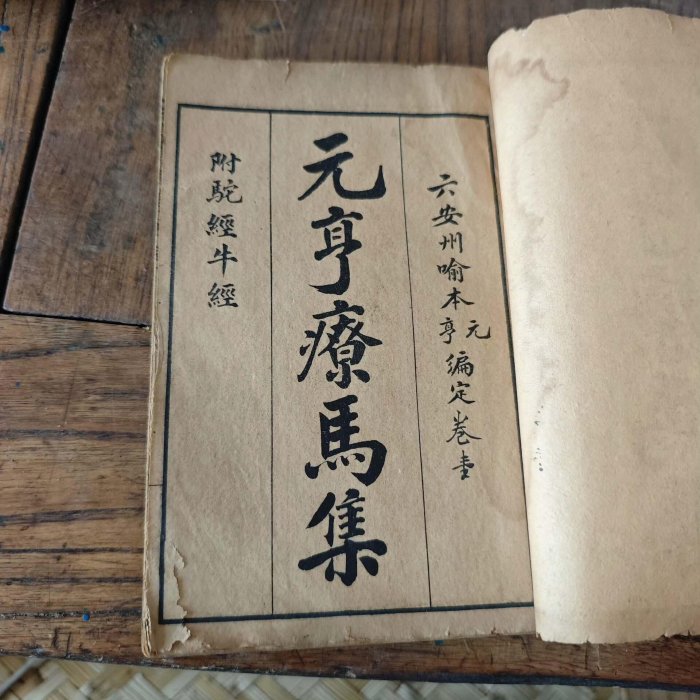 六安州喻本元亨編定卷
元亨療馬集
附駝經牛經